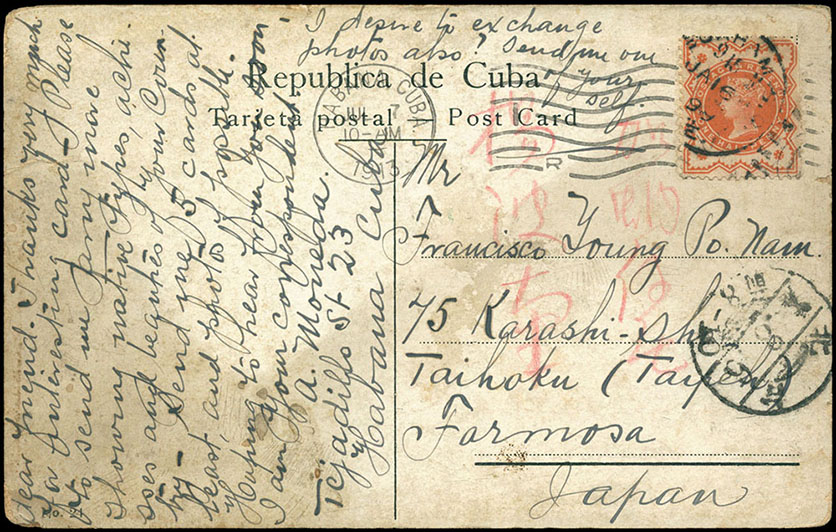 Republica de Cuba
Tarjeta postal — Post Card
I desire to exchange
photos also? Send me one
of your
self.
HABANA, CUBA
JUL 7
10-AM
Dear Friend. Thanks very much
for interesting card. Please
to send me many more
showing native types,
and beauties of your Coun-
try — Send me 5 cards at
least, and photos if posible.
Hoping to hear from you soon,
I am your correspondent.
A. Moneda.
Tejadillo St 23
Habana Cuba
Mr
Francisco Young Po. Nam.
75 Karashi-sho
Taihoku (Taipeh)
Formosa
Japan
No. 21